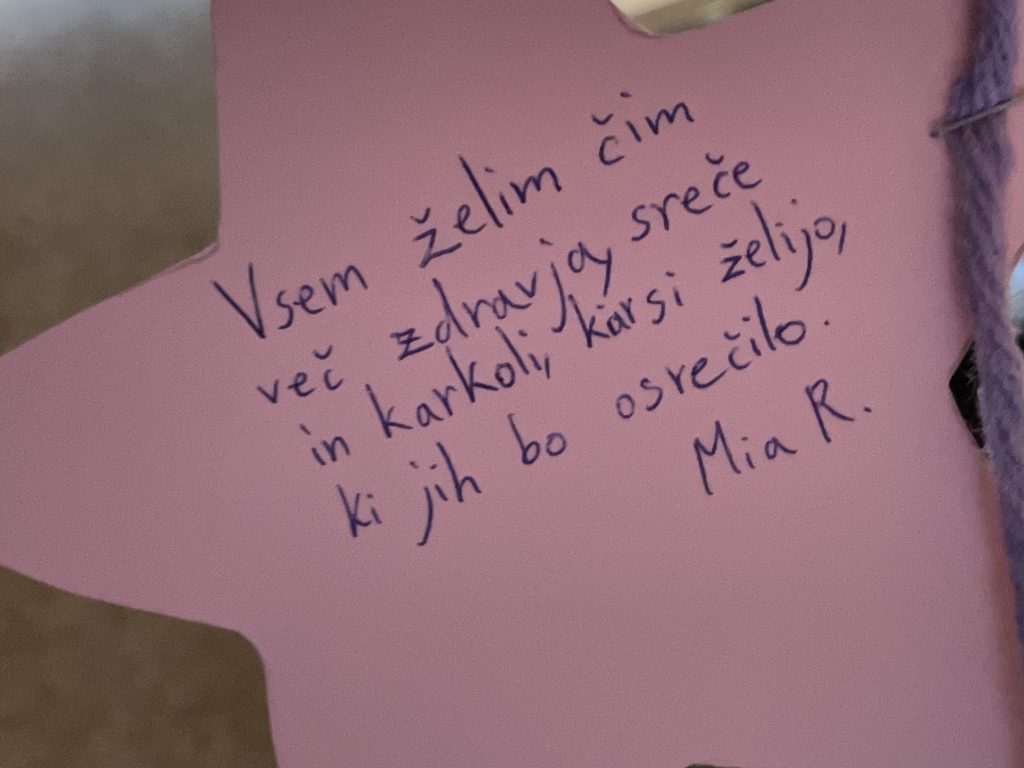 Vsem želim čim
več zdravja, sreče
in karkoli, kar si želijo,
ki jih bo osrečilo.
Mia R.